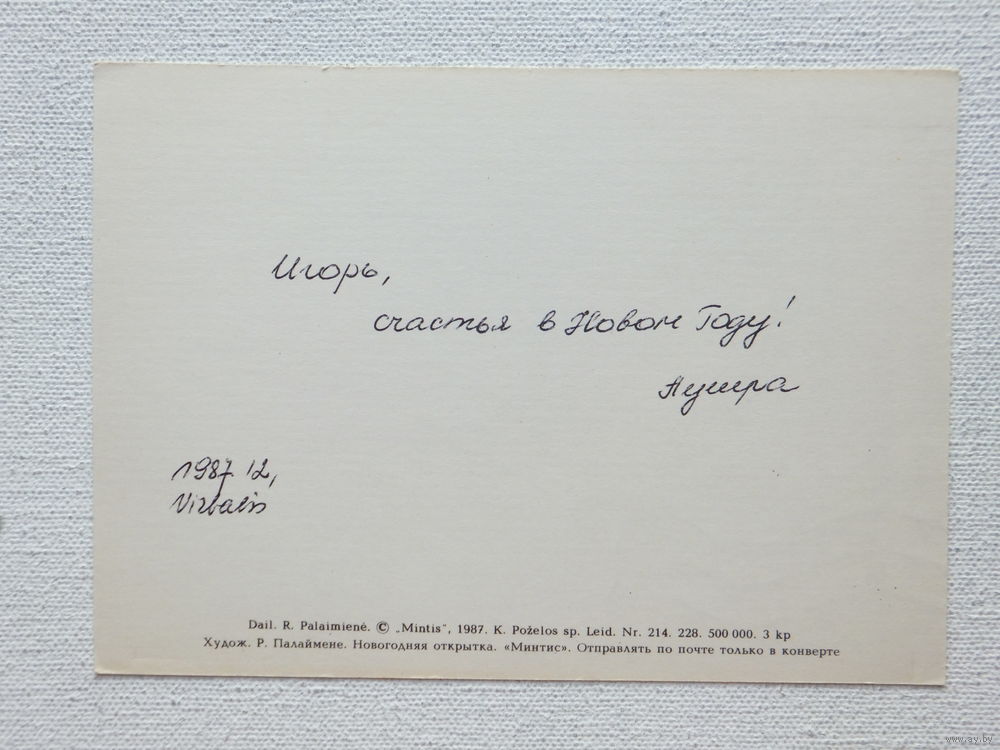 Игорь,
счастья в Новом Году!
Аушра
1987 12,
Virbalis
Dail. R. Palaimienė. © „Mintis“, 1987. K. Poželos sp. Leid. Nr. 214. 228. 500 000. 3 kp
Худож. Р. Палаймене. Новогодняя открытка. «Минтис». Отправлять по почте только в конверте
www.ay.by